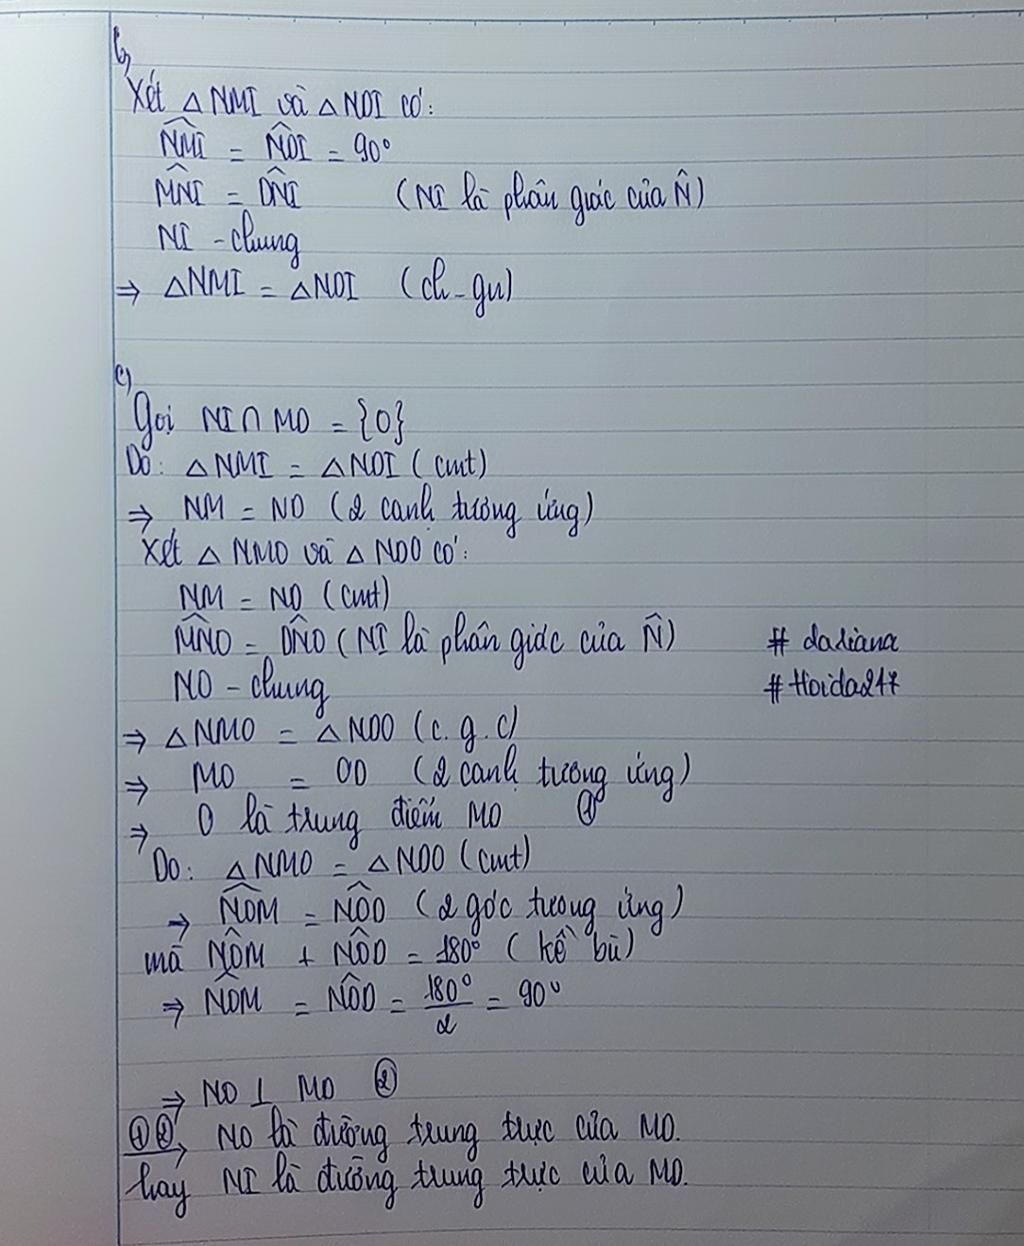 b,
Xét △NMI và △NDI có:
N̂MI = N̂DI = 90°
M̂NI = D̂NI (NI là phân giác của N̂)
NI - chung
⇒ △NMI = △NDI (ch-gn)
c)
Gọi NI ∩ MD = {O}
Do: △NMI = △NDI (cmt)
⇒ NM = ND (2 cạnh tương ứng)
Xét △NMO và △NDO có:
NM = ND (cmt)
M̂NO = D̂NO (NI là phân giác của N̂) # dariana
NO - chung # Hoidap247
⇒ △NMO = △NDO (c.g.c)
⇒ MO = OD (2 cạnh tương ứng)
⇒ O là trung điểm MD ①
Do: △NMO = △NDO (cmt)
⇒ N̂OM = N̂OD (2 góc tương ứng)
mà N̂OM + N̂OD = 180° (kề bù)
⇒ N̂OM = N̂OD = 180°/2 = 90°
⇒ NO ⊥ MD ②
①② ⇒ NO là đường trung trực của MD.
hay NI là đường trung trực của MD.